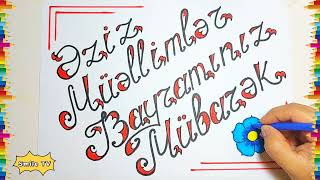 Əziz
Müəllimlər
Bayramınız
Mübarək
Smile TV